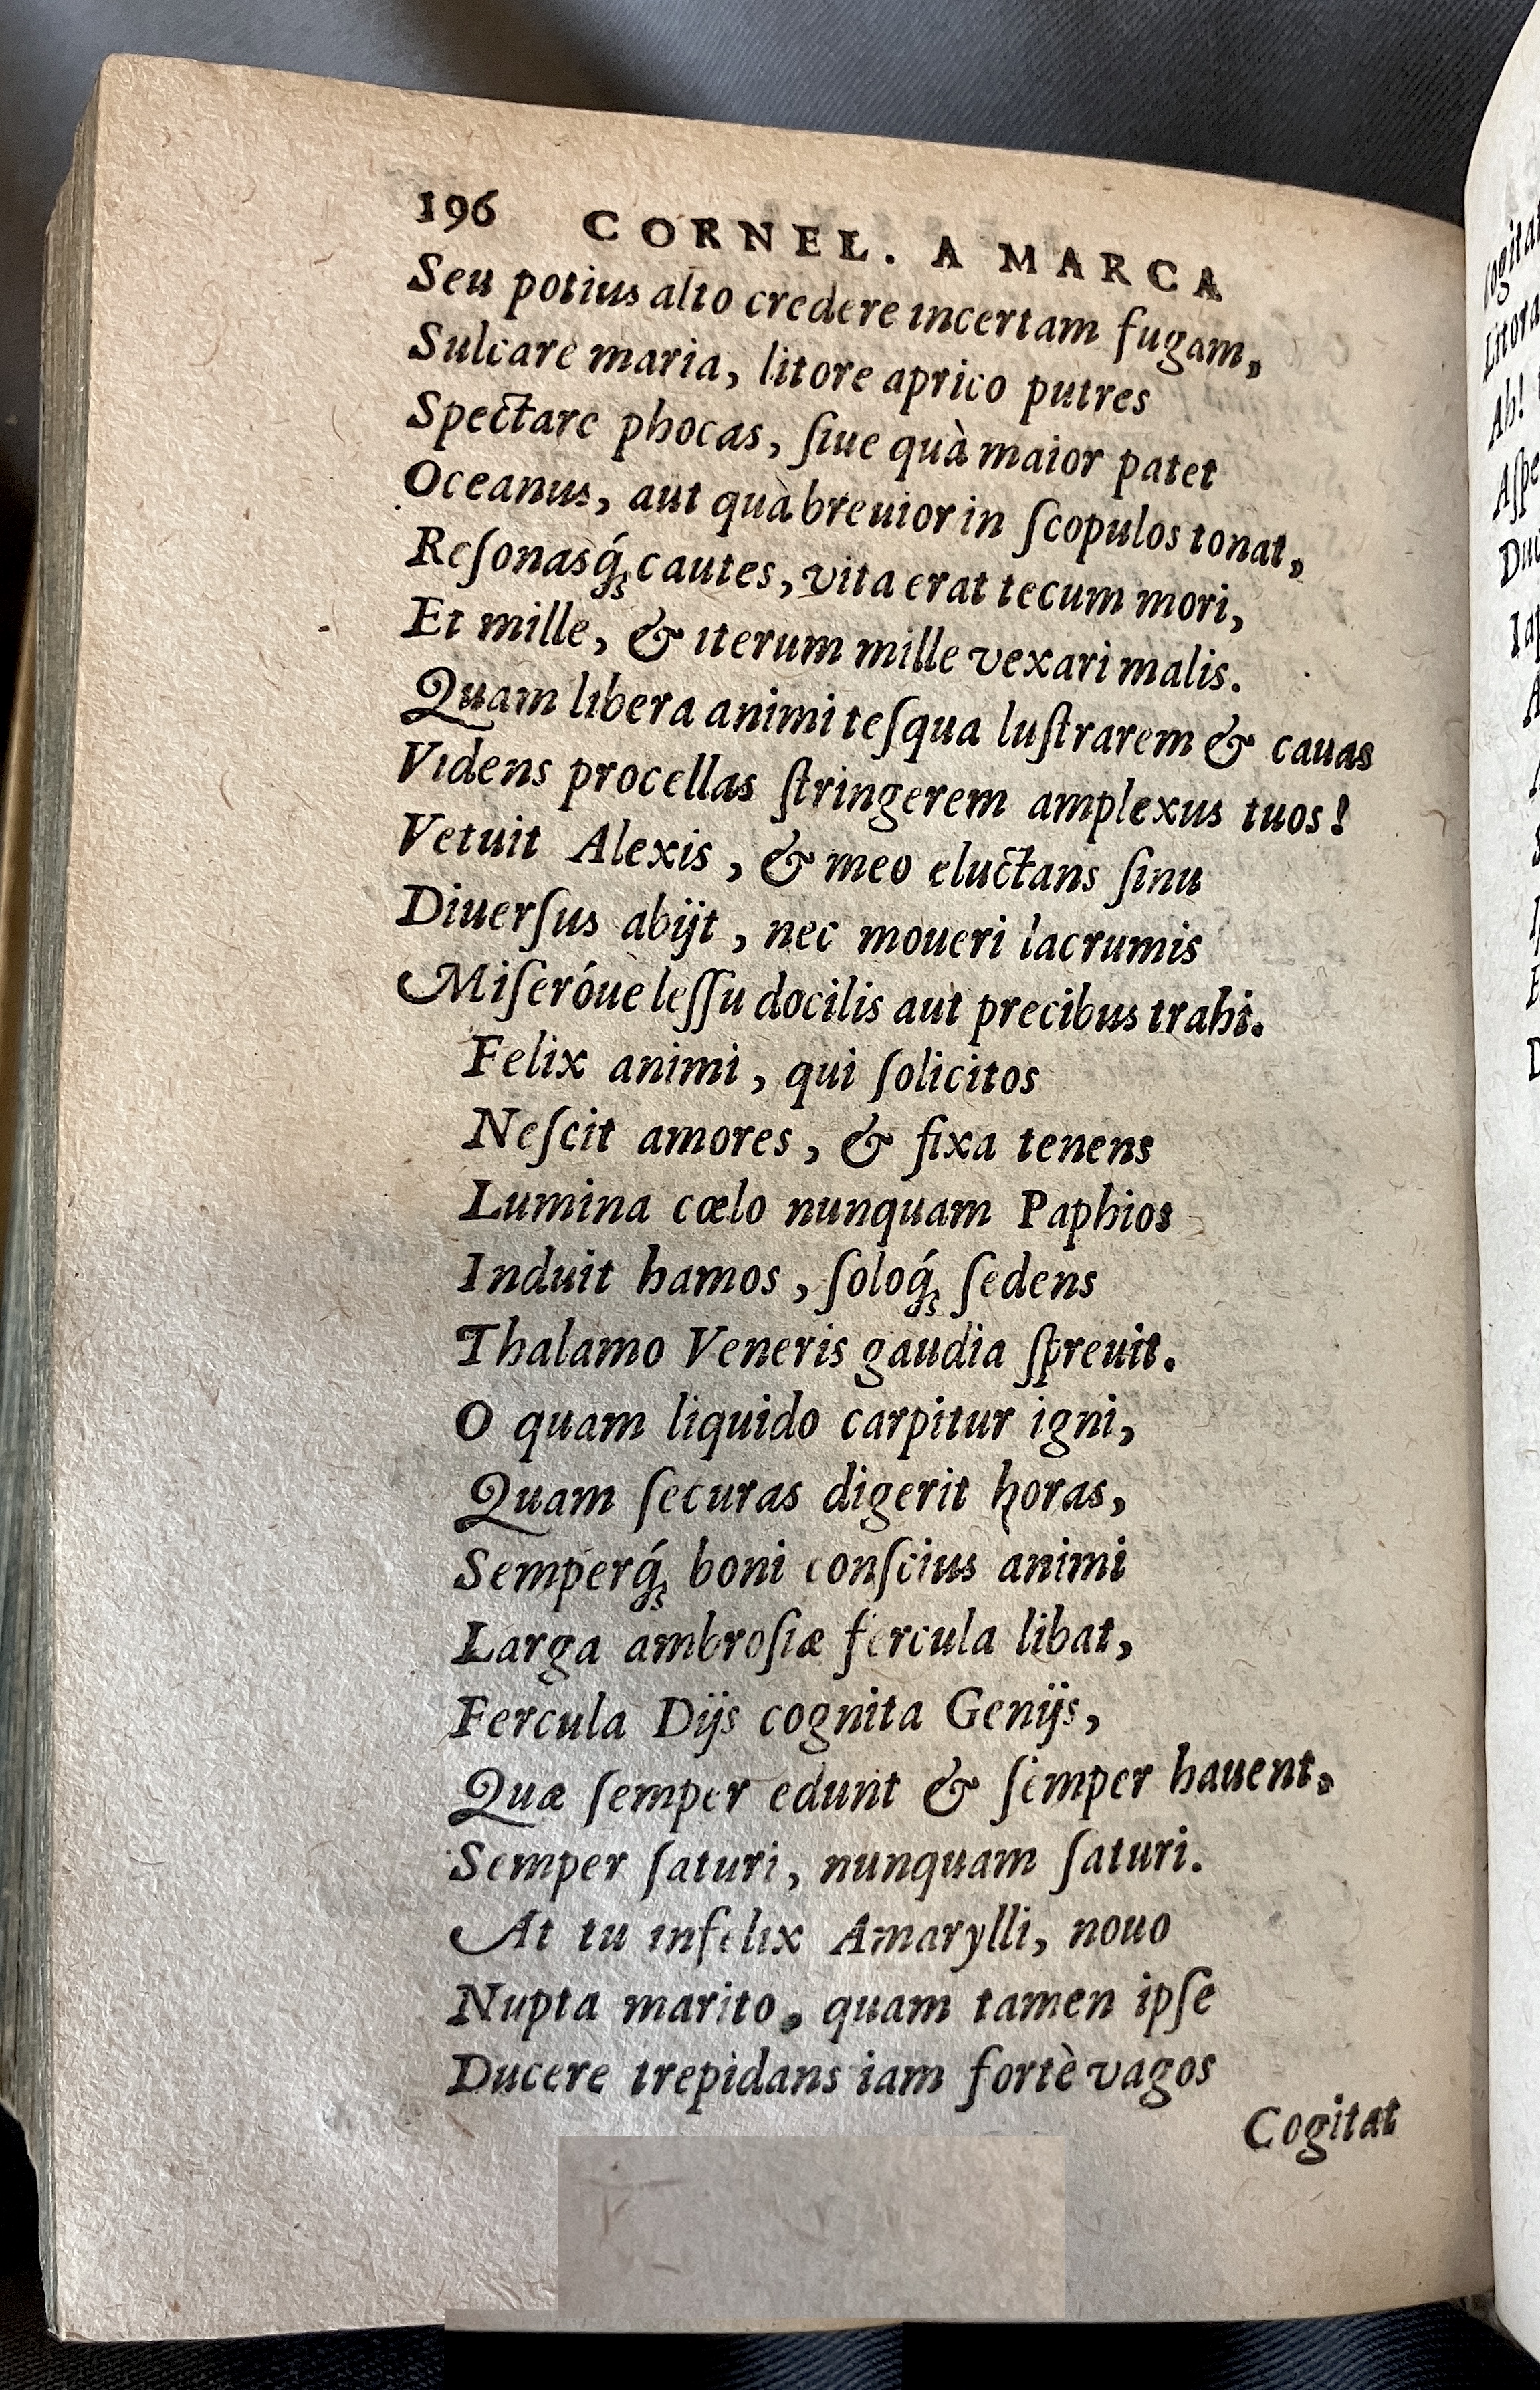 196 CORNEL. A MARCA
Seu potius alto credere incertam fugam,
Sulcare maria, litore aprico putres
Spectare phocas, ſiue quà maior patet
Oceanus, aut quà breuior in ſcopulos tonat,
Reſonasq́ꝫ cautes, vita erat tecum mori,
Et mille, & iterum mille vexari malis.
Quam libera animi teſqua luſtrarem & cauas
Videns procellas ſtringerem amplexus tuos!
Vetuit Alexis, & meo eluctans ſinu
Diuerſus abijt, nec moueri lacrumis
Miſeróue leſſu docilis aut precibus trahi.
Felix animi, qui ſolicitos
Neſcit amores, & fixa tenens
Lumina cœlo nunquam Paphios
Induit hamos, ſoloq́ꝫ ſedens
Thalamo Veneris gaudia ſpreuit.
O quam liquido carpitur igni,
Quam ſecuras digerit horas,
Semperq́ꝫ boni conſcius animi
Larga ambroſiæ fercula libat,
Fercula Dijs cognita Genijs,
Quæ ſemper edunt & ſemper hauent.
Semper ſaturi, nunquam ſaturi.
At tu infelix Amarylli, nouo
Nupta marito, quam tamen ipſe
Ducere trepidans iam fortè vagos
Cogitat
cogitat
Litora
Ah!
Aſpe